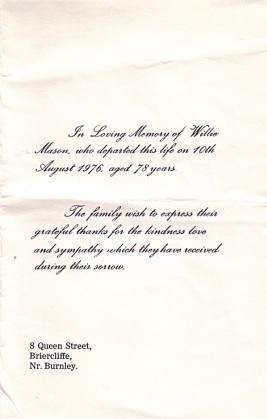 In Loving Memory of Willie
Mason, who departed this life on 10th
August 1976, aged 78 years.
The family wish to express their
grateful thanks for the kindness love
and sympathy which they have received
during their sorrow.
8 Queen Street,
Briercliffe,
Nr. Burnley.